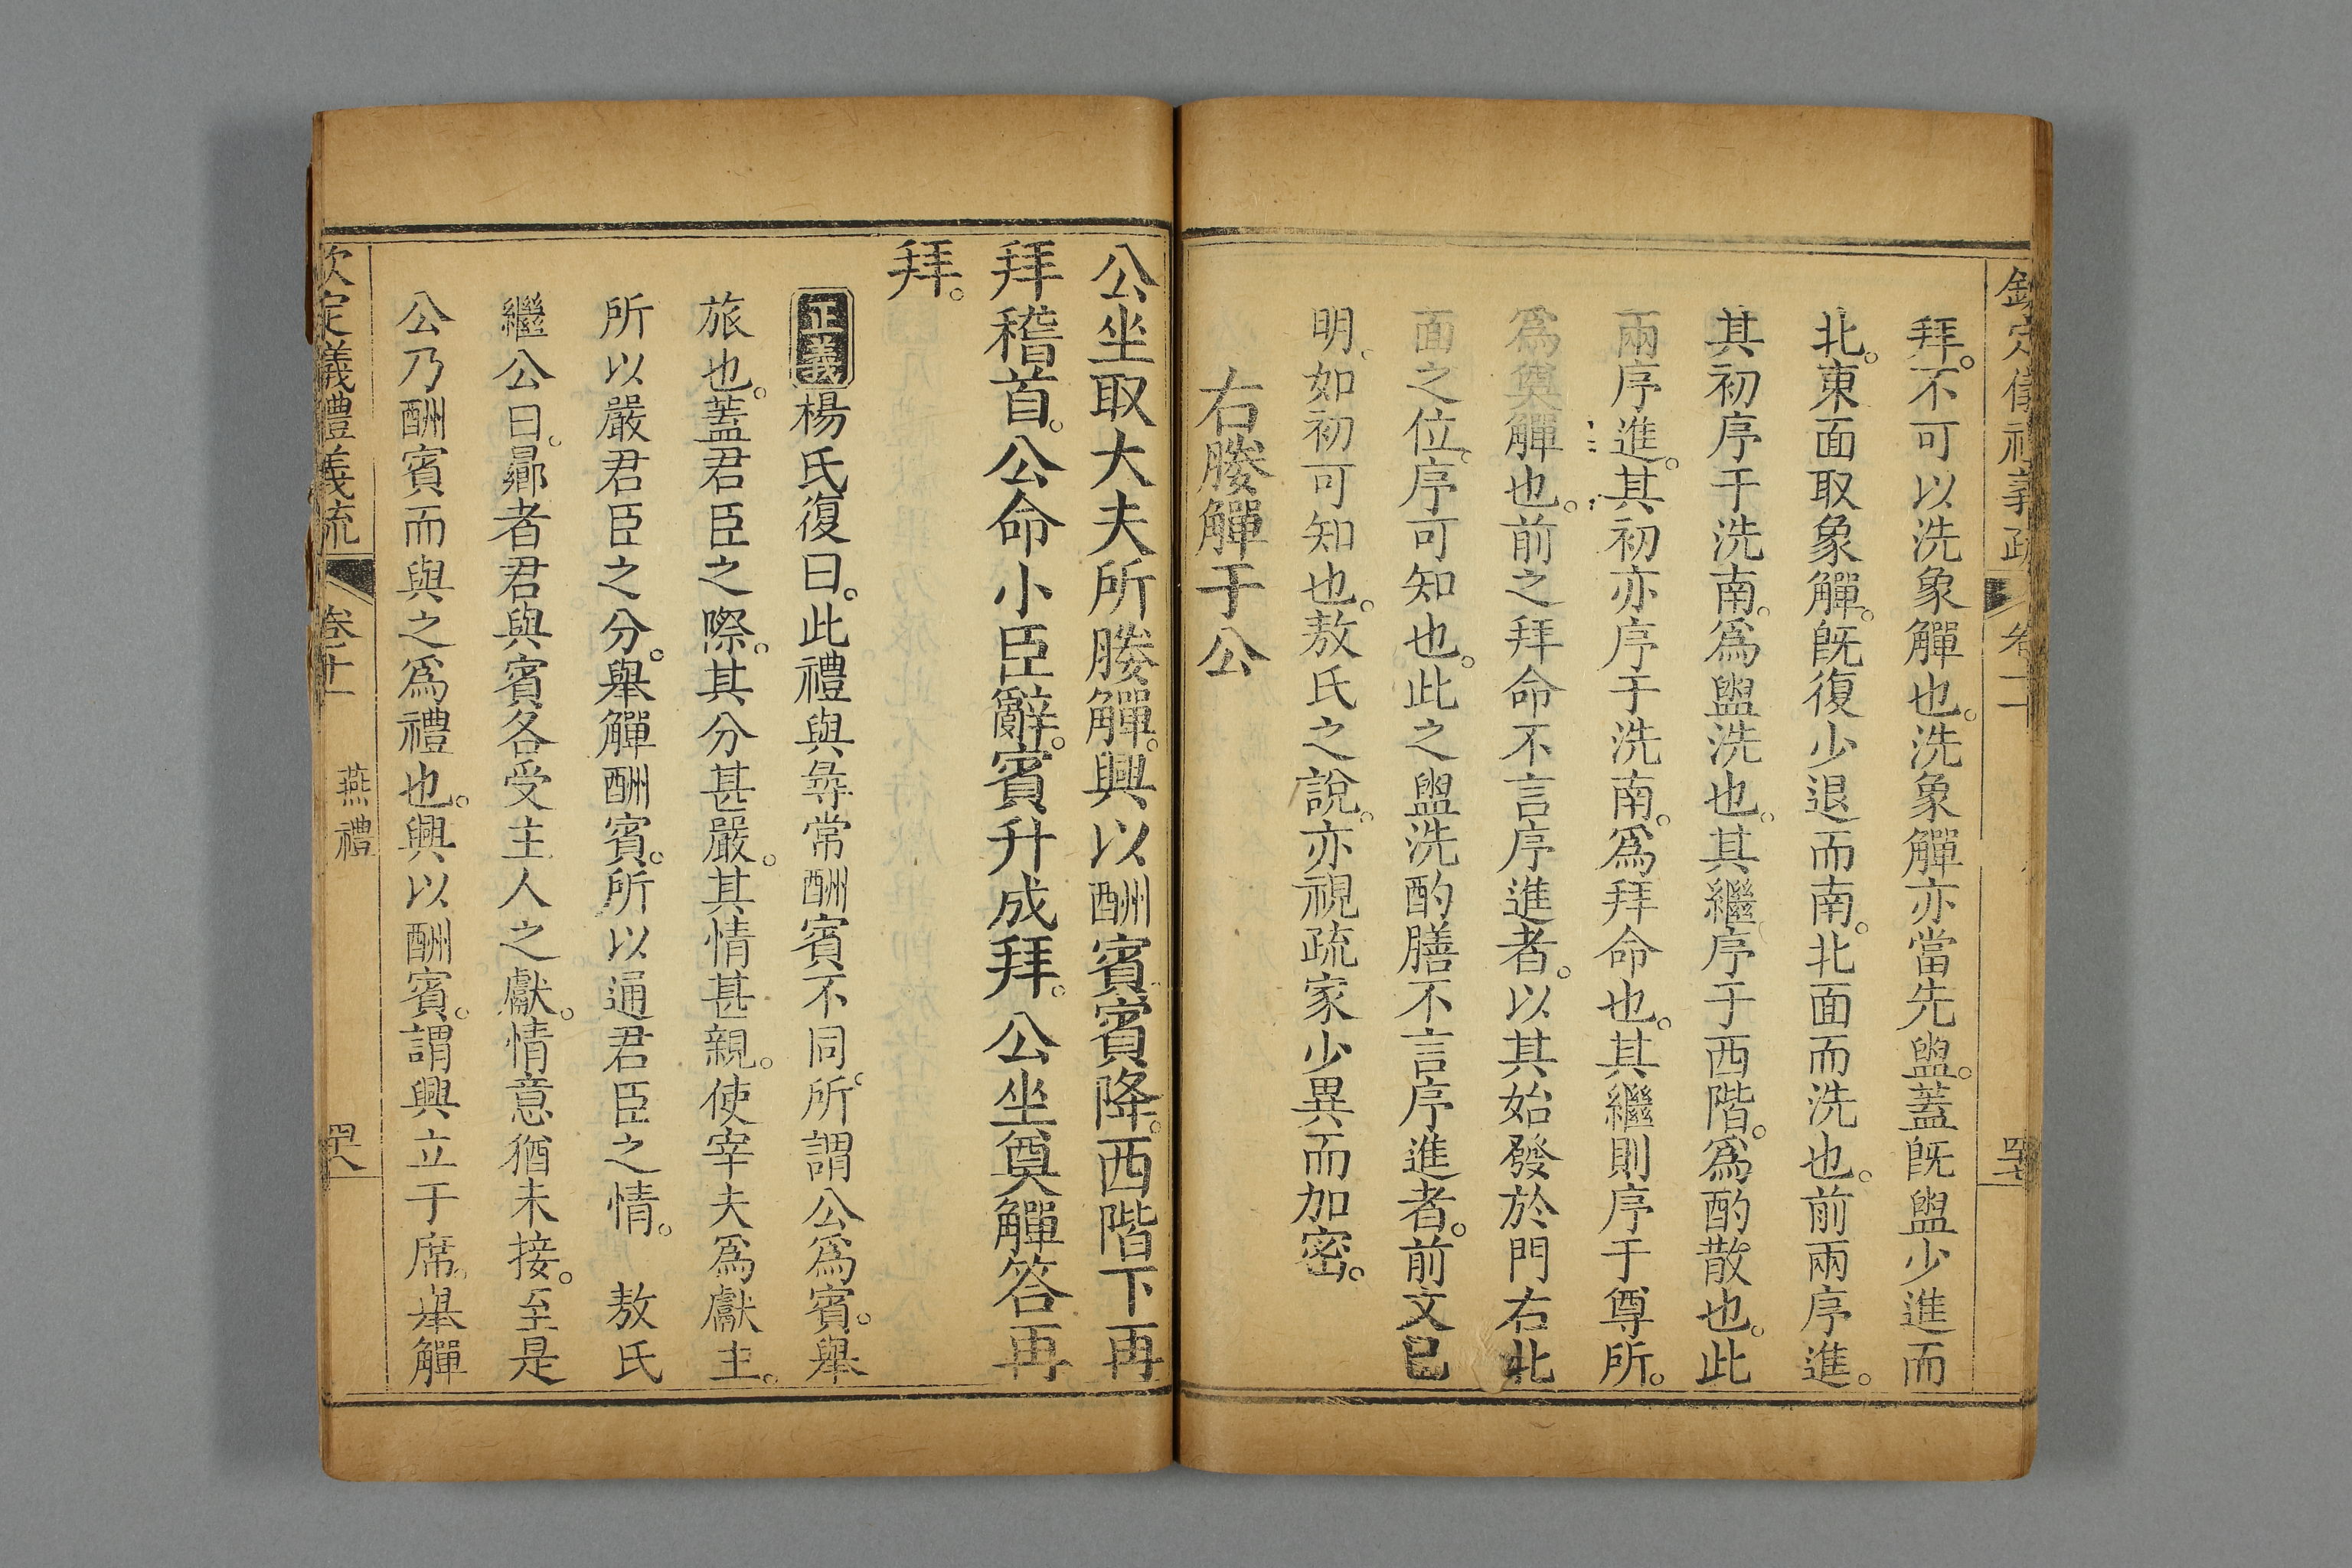 欽定儀禮義疏 卷十一 四七
拜。不可以洗象觶也。洗象觶亦當先盥。蓋既盥少進而
北。東面取象觶。既復少退而南。北面而洗也。前兩序進。
其初序于洗南。爲盥洗也。其繼序于西階。爲酌散也。此
兩序進。其初亦序于洗南。爲拜命也。其繼則序于尊所。
爲奠觶也。前之拜命不言序進者。以其始發於門右北
面之位。序可知也。此之盥洗酌膳不言序進者。前文已
明。如初可知也。敖氏之說。亦視疏家少異而加密。
右媵觶于公
公坐取大夫所媵觶。興以酬賓賓降。西階下再
拜稽首。公命小臣辭。賓升成拜。公坐奠觶答再
拜。
正義楊氏復曰。此禮與彝常酬賓不同。所謂公爲賓。舉
旅也。蓋君臣之際。其分甚嚴。其情甚親。使宰夫爲獻主。
所以嚴君臣之分。舉觶酬賓。所以通君臣之情。 敖氏
繼公曰。曏者君與賓各受主人之獻。情意猶未接。至是
公乃酬賓而與之爲禮也。興以酬賓。謂興立于席。舉觶
欽定儀禮義疏 卷十一 燕禮 四八